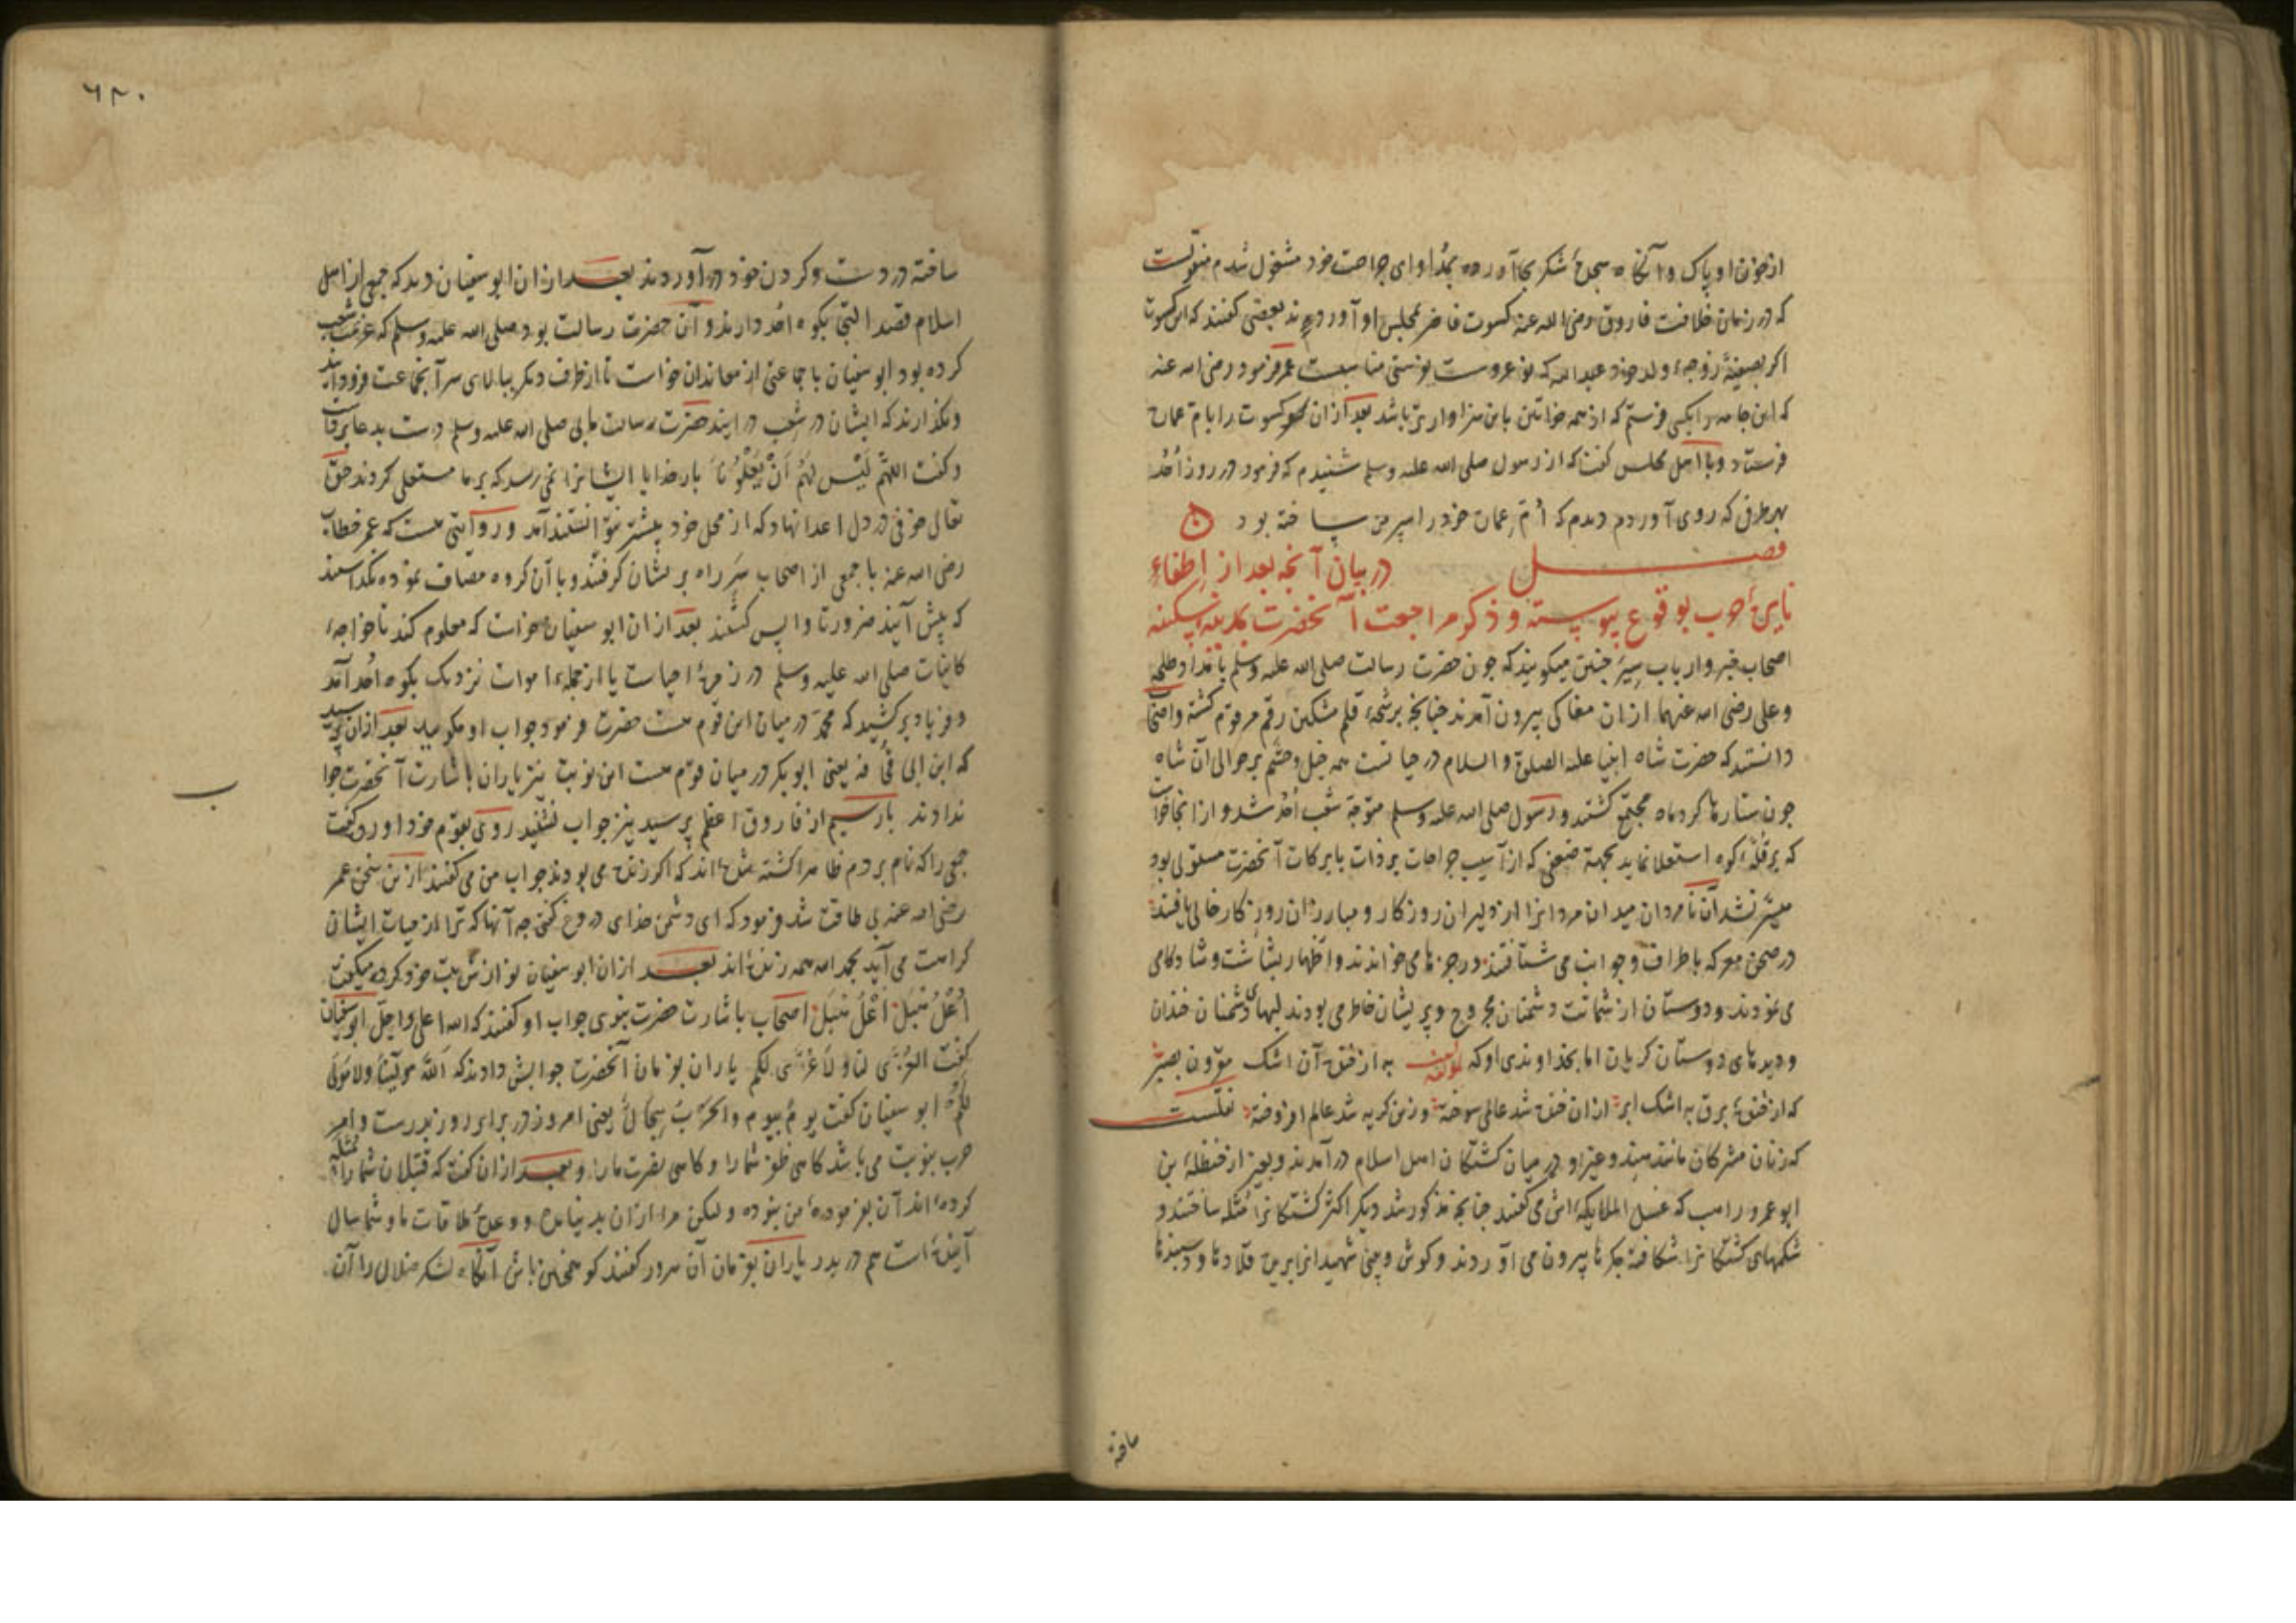 از خون او پاک و آنگاه سجدهٔ شکر بجا آورده بمداوای جراحت خود مشغول شدم منقولست
که در زمان خلافت فاروق رضی الله عنه کسوت فاخر بمجلس او آوردند بعضی گفتند که این کسوت
اگر بصفیهٔ زوجهٔ ولد خود عبدالله که نو عروست بفرستی مناسبست عمر فرمود رضی الله عنه
که این جامه را بکسی فرستم که از همه خواتین باین سزاوارتر باشد بعد ازان کسوت را بام عماره
فرستاد و با اهل مجلس گفت که از رسول صلی الله علیه وسلم شنیدم که فرمود در روز اُحُد
بهر طرف که روی آوردم دیدم که اُمّ عماره خود را سپر من ساخته بود
فصل در بیان آنچه بعد از اِطفاءِ
نایرهٔ حرب بوقوع پیوسته و ذکر مراجعت آنحضرت بمدینه سکینه
اصحاب خبر و ارباب سِیَر چنین میگویند که چون حضرت رسالت صلی الله علیه وسلم با مداد طلحه
و علی رضی الله عنهما ازان مغاکی بیرون آمدند چنانچه برشحهٔ قلم مشکین رقم مرقوم گشته و اصحاب
دانستند که حضرت شاه انبیا علیه الصلوة والسلام در حیاتست همه خیل وحشم بر حوالی آن شاه
چون ستارها گرد ماه مجتمع گشتند و رسول صلی الله علیه وسلم متوجّه شعب اُحُد شد و از انجا خواست
که بر قُلّهٔ کوه استعلا نماید بجهة ضعفی که از آسیب جراحات بر ذات بابرکات آنحضرت مستولی بود
میسّر نشد آن نامردان میدان مردانرا از دلیران روزگار و مبارزان روز کار خالی یافتند
در صحن معرکه باطراف و جوانب می شتافتند و رجزها می خواندند و اظهار بشاشت و شادکامی
می نمودند و دوستان از شماتت دشمنان مجروح و پریشان خاطر می بودند لبهای دشمنان خندان
و دیدهای دوستان گریان اما بخداوندی او که لمؤلفه به از خندهٔ آن اشک مقرون بصبر
که از خندهٔ برق به اشک ابر ازان خنده شد عالمی سوخته وزین گریه شد عالم افروخته نقلست
که زنان مشرکان مانند هند و غیر او در میان کشتگان اهل اسلام در آمدند و بغیر از حنظلهٔ بن
ابو عمرو راهب که غسیل الملایکه اش می گفتند چنانچه مذکور شد دیگر اکثر کشتگانرا مُثله ساختند و
شکمهای کشتگانرا شکافته جگرها بیرون می آوردند و گوش و بینی شهیدانرا بریده قلادها و دستبندها
ساخته
٦٢٠
ساخته در دست و گردن خود در آوردند بعد ازان ابو سفیان دید که جمعی از اهل
اسلام قصد التجا بکوه اُحُد دارند و آن حضرت رسالت بود صلی الله علیه وسلم که عزیمت شعب
کرده بود ابو سفیان با جماعتی از معاندان خواست تا از طرف دیگر ببالای سر آنجماعت فرود آیند
و نگذارند که ایشان در شعب در آیند حضرت رسالت مابی صلی الله علیه وسلم دست بدعا برداشت
و گفت اللهم لَیْسَ لَهُمْ اَنْ یَعْلُوْنَا بار خدایا ایشانرا نمی رسد که بر ما مستعلی گردند حق
تعالی خوفی در دل اعدا نهاد که از محل خود پیشتر نتوانستند آمد و روایتی هست که عمر خطاب
رضی الله عنه با جمعی از اصحاب سَرِ راه بر ایشان گرفتند و با آن گروه مصاف نموده نگذاشتند
که پیش آیند ضرورتا واپس گشتند بعد ازان ابو سفیان خواست که معلوم کند تا خواجهٔ
کاینات صلی الله علیه وسلم در زمرهٔ احیاست یا از جملهٔ اموات نزدیک بکوه اُحُد آمد
و فریاد بر کشید که محمّد در میان این قوم هست حضرت فرمود جواب او مگویید بعد ازان پرسید
که ابن ابی قُحافه یعنی ابوبکر در میان قوم هست این نوبت نیز یاران باشارت آنحضرت جواب
ندادند بار سیم از فاروق اعظم پرسید نیز جواب نشنید روی بقوم خود آورد و گفت
جمعی را که نام بردم ظاهرا کشته شده اند که اگر زنده می بودند جواب من می گفتند ازین سخن عمر
رضی الله عنه بی طاقت شد و فرمود که ای دشمن خدای دروغ گفتی چه آنها که ترا از حیات ایشان
کراهت می آید بحمد الله همه زنده اند بعد ازان ابو سفیان نوازش بت خود کرده میگفت
اُعْلُ هُبَل اُعْلُ هُبَل اصحاب باشارت حضرت نبوی جواب او گفتند که الله اعلی و اجلّ ابو سفیان
گفت العُزّی لنا ولا عُزّی لکم یاران بفرمان آنحضرت جوابش دادند که اَللهُ مولینا ولا مَولی
لکم ابو سفیان گفت یومٌ بیوم والحربُ سِجالٌ یعنی امروز در برابر روز بدرست و امر
حرب بنوبت می باشد گاهی ظفر شما را و گاهی نصرت ما را و بعد ازان گفت که قتیلان شما را مُثله
کرده اند آن بفرمودهٔ من نبوده و لیکن مرا ازان بد نیامده و وعدهٔ ملاقات ما و شما سال
آینده است هم در بدر یاران بفرمان آن سرور گفتند گو همچنین باش آنگاه لشکر ضلال را آن